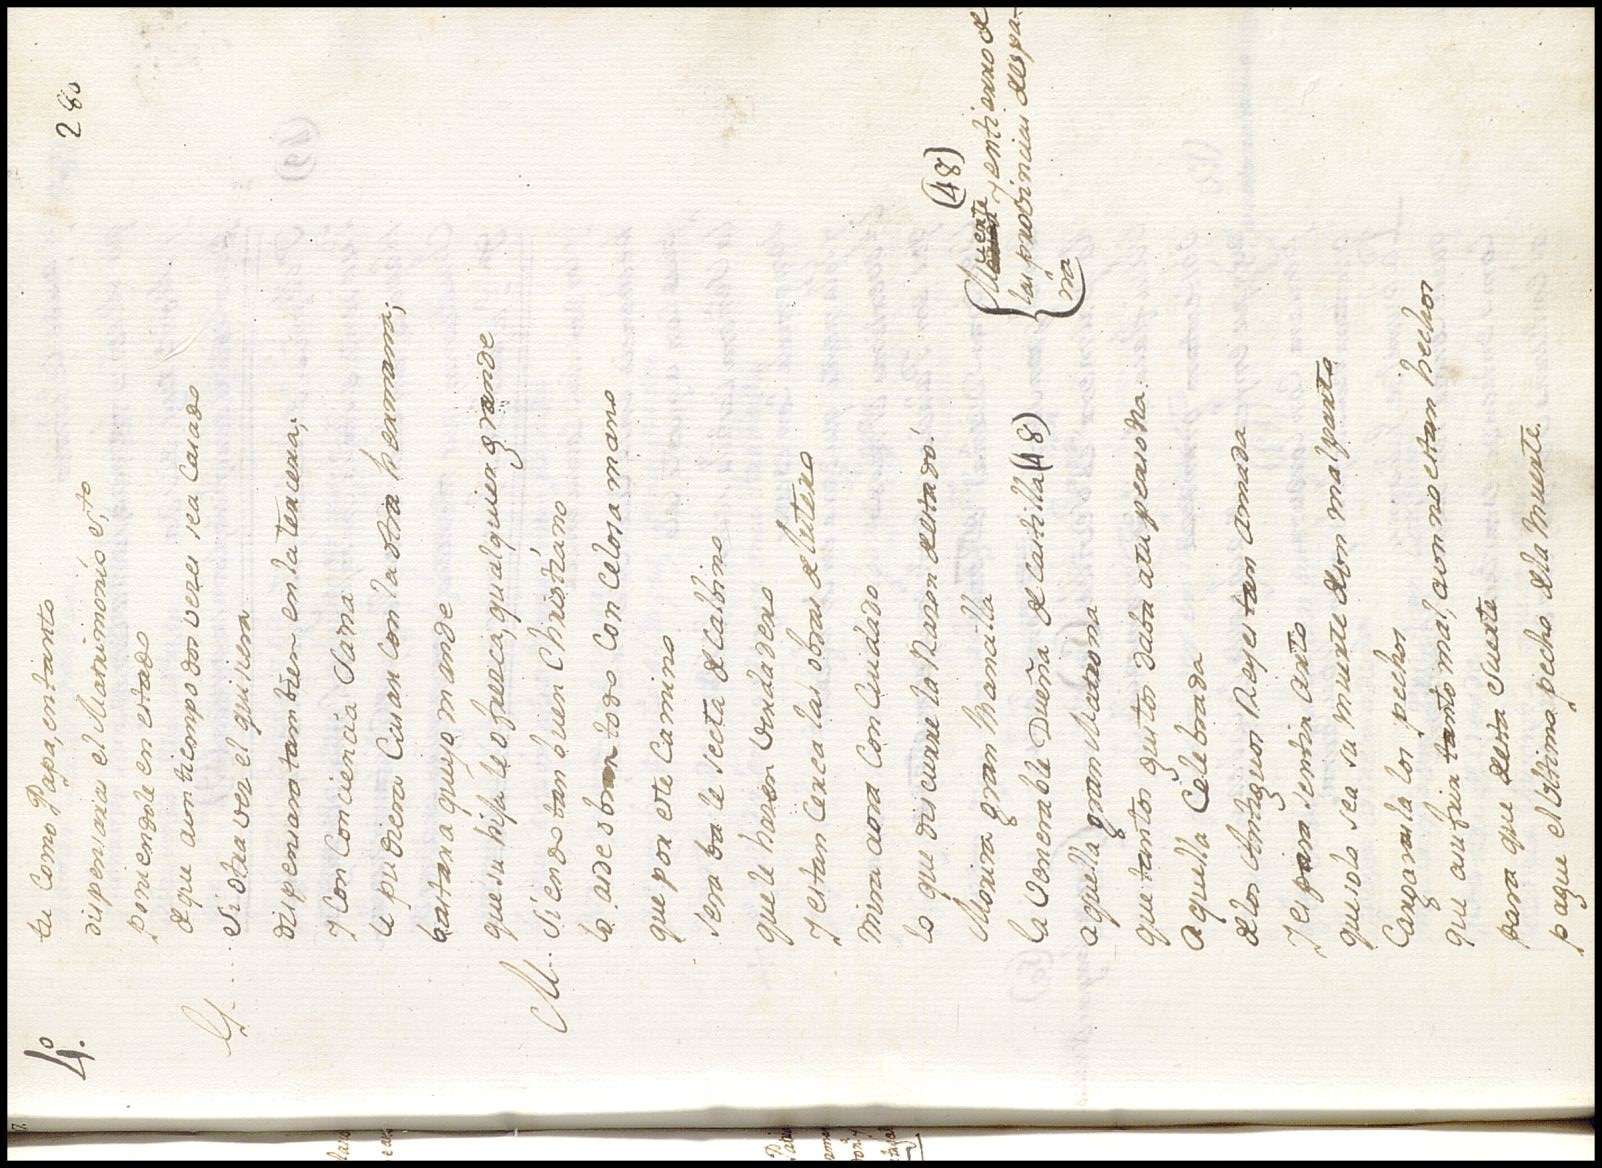 4.º
280
tu como Papa, entanto
dispensias el Matrimonio esto
poniendole en estado
de que aun tiempo dos vezes sea Casado
Si otra vez el quisiera
dispensaro tambien en la tercera;
y con Conciencia Sana
te pudiera Casar con la otra hermana;
bastara que yo mande
que su hija le ofrezca, qualquier grande
M.. Siendo tan buen Christiano
la arde obran todo con Celosa mano
que por este Camino
sera de la secta de Calbino
que le haran verdadero
y estan Cerca las obras de Lutero
Mira aora con Cuidado
lo que discurre la Razon de estado!
Morira gran Mancilla
la Venerable Dueña de Castilla (48)
aquella gran Matrona
que tantos gustos daba a tu persona.
Aquella Celebrada
de los Antiguos Reyes tan amada
y es para sentir arto
que solo sea su muerte de un mal parto
Cargaran la los pechos
que aufria tanto mal, aun no estan hechos
para que desta Suerte
pague el Ultimo, pecho de la Muerte.
(48)
Muerte y entierro de
las probincias de Espa-
ña